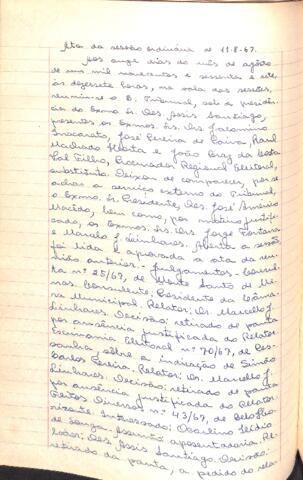 Ata da sessão ordinária de 11-8-67.
Aos onze dias do mês de agôsto
de um mil novecentos e sessenta e sete,
às dezessete horas, na sala das sessões,
reuniu-se o E. Tribunal, sob a presidên-
cia do Exmo. Sr. Des. Assis Santiago,
presentes os Exmos. Srs. Drs. Jacomino
Inacarato, José Pereira de Paiva, Raul
Machado Horta e João Braz da Costa
Val Filho, Procurador Regional Eleitoral,
substituto. Deixou de comparecer, por se
achar a serviço externo do Tribunal,
o Exmo. Sr. Presidente, Des. José Américo
Macêdo, bem como, por motivo justifi-
cado, os Exmos. Srs. Drs. Jorge Fontana
e Marcelo J. Linhares. Aberta a sessão
foi lida e aprovada a ata da reu-
nião anterior. Julgamentos - Consul-
ta nº 25/67, de Monte Santo de Mi-
nas. Consulente: Presidente da Câma-
ra Municipal. Relator: Dr. Marcello J.
Linhares. Decisão: retirado de pauta
por ausência justificada do Relator.
Escrivania Eleitoral nº 70/67, de Pes-
sôbre a indicação de Simão
Carlos Pereira. Relator: Dr. Marcello J.
Linhares. Decisão: retirado de pauta
por ausência justificada do Relator.
Feitos Diversos nº 43/67, de Belo Ho-
rizonte. Interessado: Osculino Ilídio
de Souza. Assunto: aposentadoria. Re-
lator: Des. Assis Santiago. Decisão:
retirado da pauta, a pedido do rela-